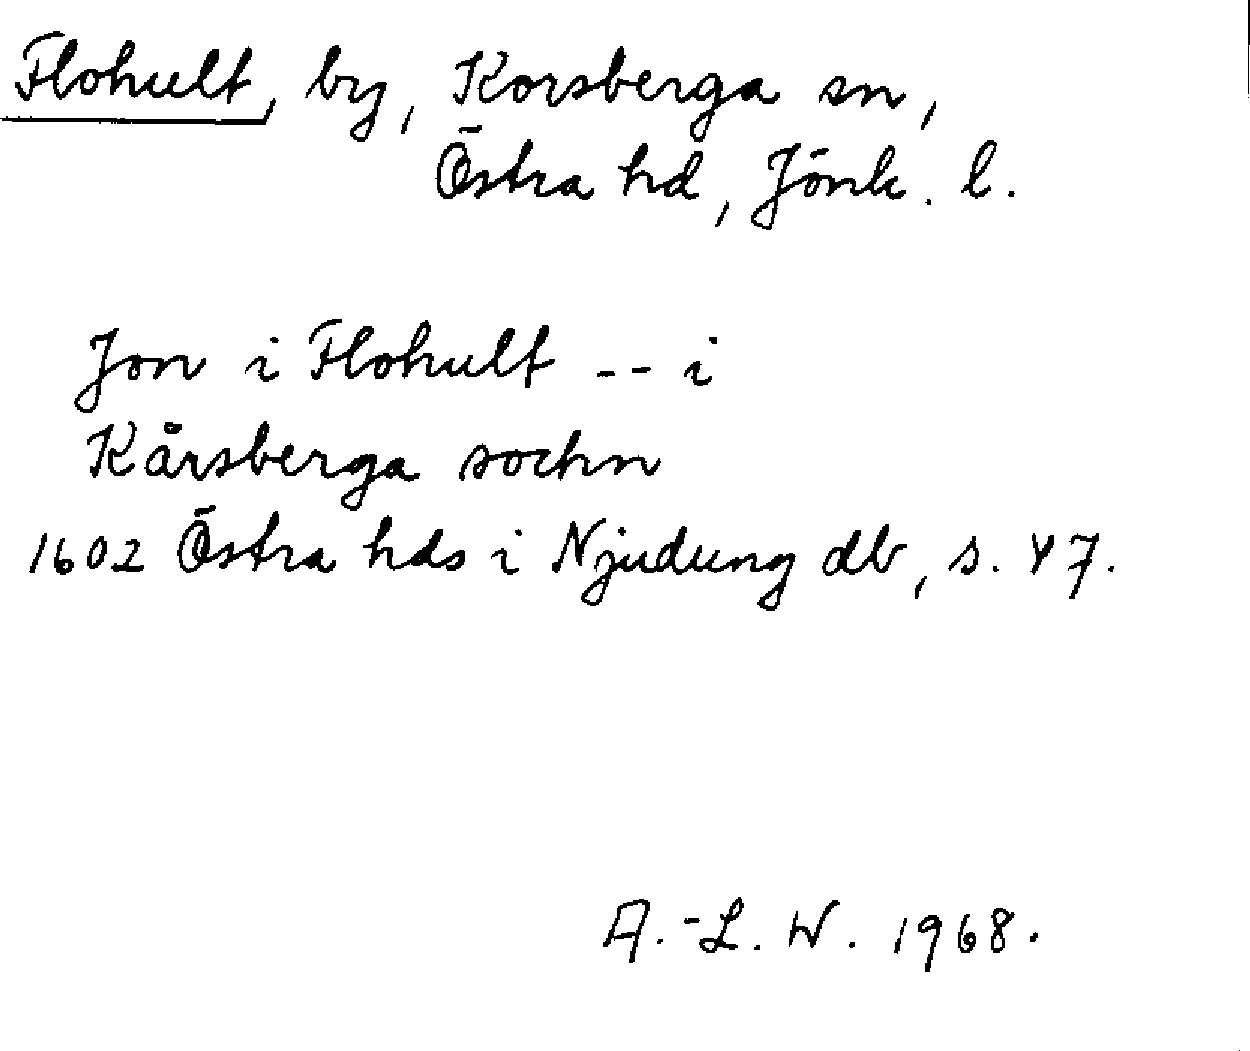 Flohult, by, Korsberga sn,
Östra hd, Jönk. l.
Jon i Flohult -- i
Kårsberga sochn
1602 Östra hds i Njudung db, s. 47.
A.-L. W. 1968.